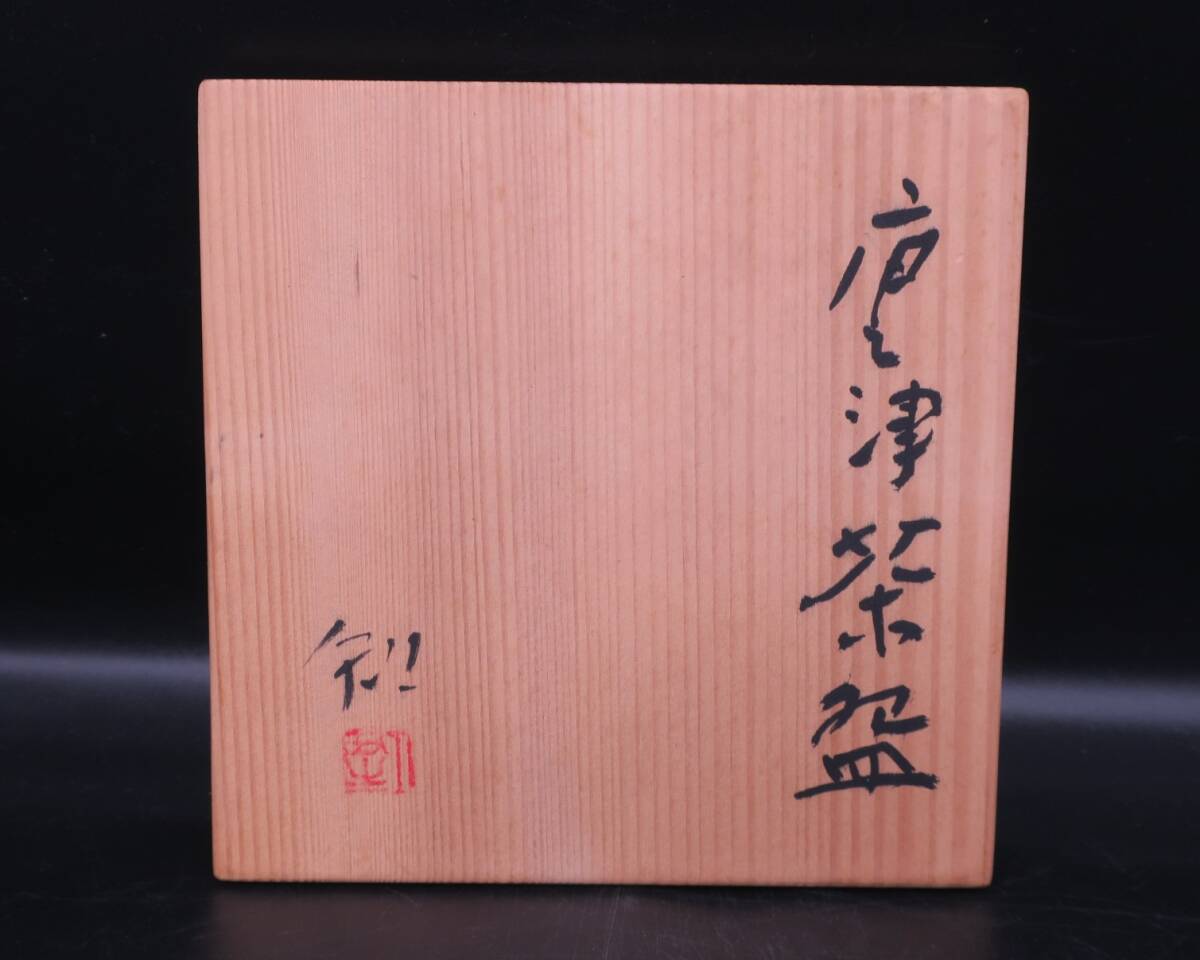 唐津茶盌